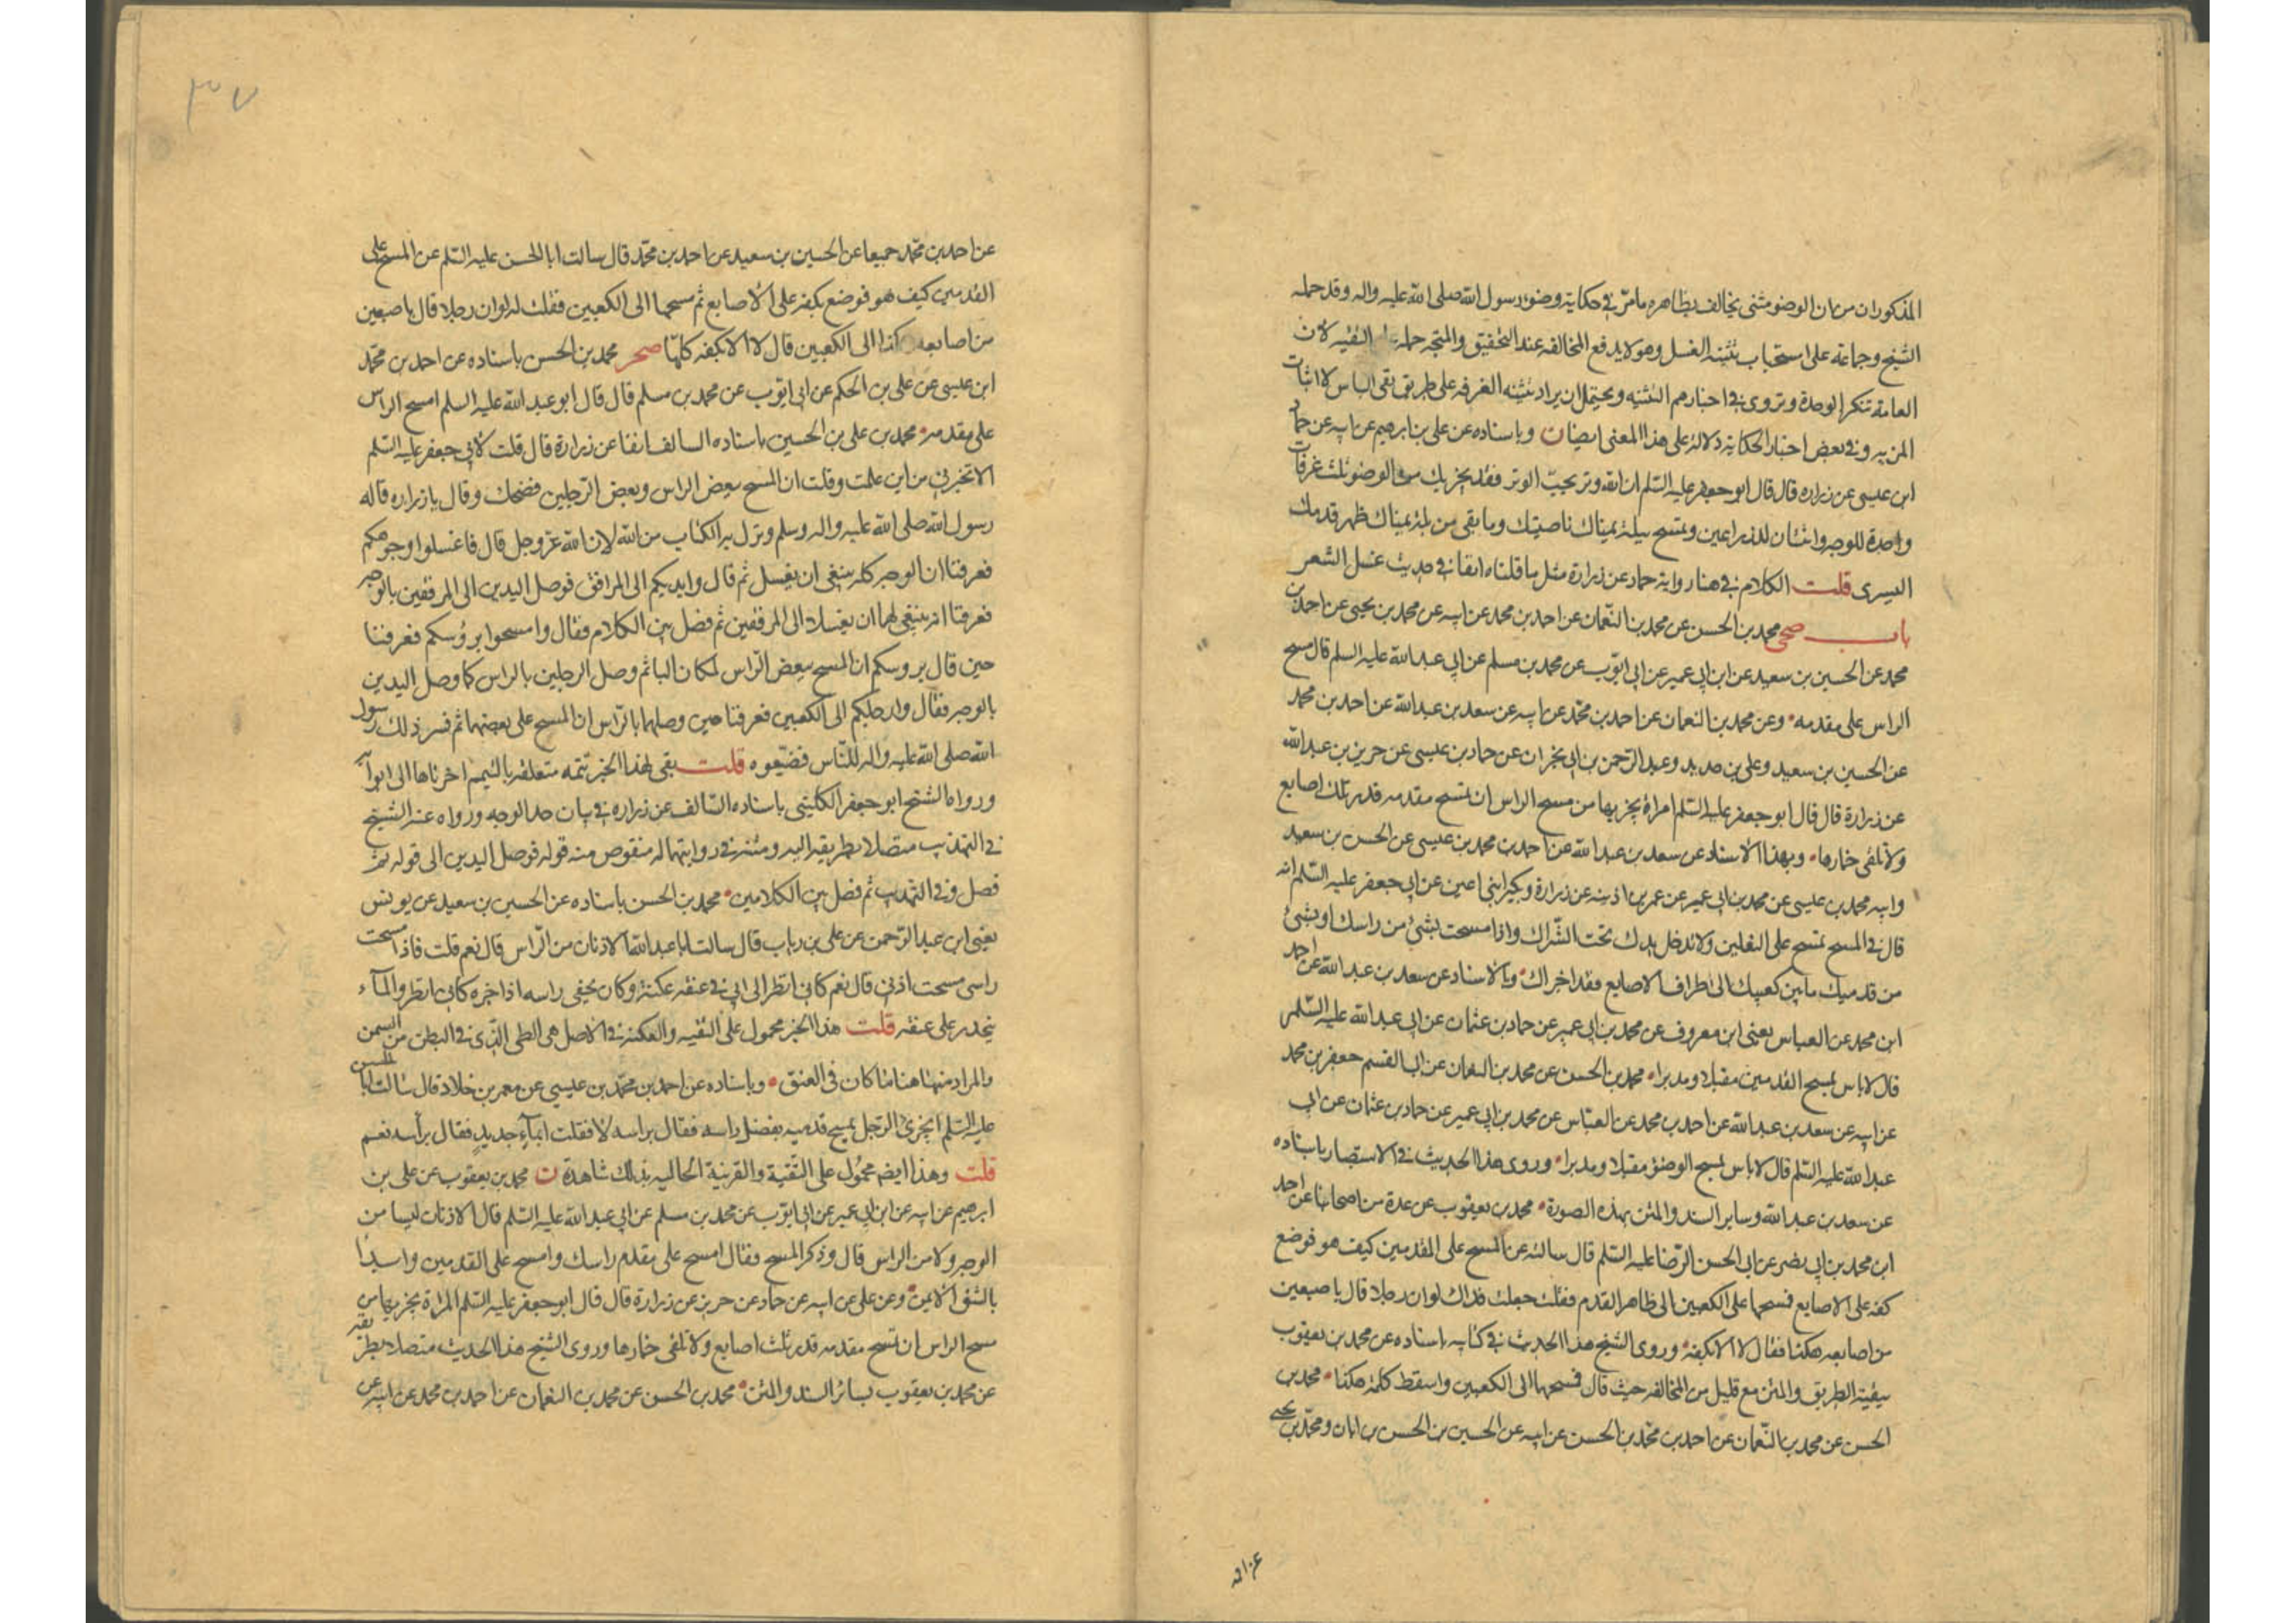 المذكوران من ان الوضوء مثنى يخالف بظاهره ما مرّ في حكاية وضوء رسول الله صلى الله عليه واله وقد حمله
الشيخ وجماعة على استحباب تثنية الغسل وهو لا يدفع المخالفه عند التحقيق والمتجه حمله على التقيه لان
العامة تنكر الوحدة وتروى في اخبارهم التثنيه ويحتمل ان يراد تثنيه الغرفه على طريق نفى الباس لا اثبات
المزيه وفي بعض اخبار الحكاية دلالة على هذا المعنى ايضا ن وباسناده عن على بن ابرهيم عن ابيه عن حماد
ابن عيسى عن زراره قال قال ابو جعفر عليه السّلم ان الله وتر يحبّ الوتر فقد يجزيك من الوضوء ثلث غرفات
واحدة للوجه واثنتان للذراعين وتمسح ببلة يمناك ناصيتك وما بقى من بلة يمناك ظهر قدمك
اليسرى قلت الكلام في هنا رواية حماد عن زرارة مثل ما قلناه انفا في حديث غسل الشعر
باب صحى محمد بن الحسن عن محمد بن النّعمان عن احمد بن محمد عن ابيه عن محمد بن يحيى عن احمد بن
محمد عن الحسين بن سعيد عن ابن ابي عمير عن ابي ايّوب عن محمد بن مسلم عن ابي عبد الله عليه السلم قال مسح
الراس على مقدمه وعن محمد بن النعمان عن احمد بن محمّد عن ابيه عن سعد بن عبد الله عن احمد بن محمد
عن الحسين بن سعيد وعلى بن حديد وعبد الرّحمن بن ابي نجران عن حماد بن عيسى عن حريز بن عبد الله
عن زرارة قال قال ابو جعفر عليه السّلم امراة يجزيها من مسح الراس ان تمسح مقدمه قدر ثلث اصابع
ولا تلقى خمارها وبهذا الاسناد عن سعد بن عبد الله عن احمد بن محمد بن عيسى عن الحسن بن سعيد
وابيه محمد بن عيسى عن محمد بن ابي عمير عن عمر بن اذينه عن زرارة وبكير ابنى اعين عن ابي جعفر عليه السّلم انه
قال في المسح تمسح على النعلين ولا تدخل يدك تحت الشّراك واذا مسحت بشئ من راسك او بشئ
من قدميك ما بين كعبيك الى اطراف الاصابع فقد اجزاك وبالاسناد عن سعد بن عبد الله عن احمد
ابن محمد عن العباس يعنى ابن معروف عن محمد بن ابي عمير عن حماد بن عثمان عن ابي عبد الله عليه السّلم
قال لا باس بمسح القدمين مقبلا ومدبرا محمد بن الحسن عن محمد بن النعمان عن ابي القسم جعفر بن محمد
عن ابيه عن سعد بن عبد الله عن احمد بن محمد عن العبّاس عن محمد بن ابي عمير عن حماد بن عثمان عن ابي
عبد الله عليه السّلم قال لا باس بمسح الوضوء مقبلا ومدبرا وروى هذا الحديث في الاستبصار باسناده
عن سعد بن عبد الله وساير السند والمتن بهذه الصورة محمد بن يعقوب عن عدة من اصحابنا عن احمد
ابن محمد بن ابي نصر عن ابي الحسن الرّضا عليه السّلم قال سالته عن المسح على القدمين كيف هو فوضع
كفه على الاصابع فمسحها على الكعبين الى ظاهر القدم فقلت جعلت فداك لو ان رجلا قال باصبعين
من اصابعه هكذا فقال لا الا بكفه وروى الشيخ هذا الحديث في كتابه باسناده عن محمد بن يعقوب
ببقية الطريق والمتن مع قليل من المخالفه حيث قال فمسحها الى الكعبين واسقط كلمة هكذا محمد بن
الحسن عن محمد بن النّعمان عن احمد بن محمّد بن الحسن عن ابيه عن الحسين بن الحسن بن ابان ومحمّد بن يحيى
عن احمد
٣٧
عن احمد بن محمّد جميعا عن الحسين بن سعيد عن احمد بن محمّد قال سالت ابا الحسن عليه السّلم عن المسح على
القدمين كيف هو فوضع بكفه على الاصابع ثم مسحها الى الكعبين فقلت له لو ان رجلا قال باصبعين
من اصابعه كذا الى الكعبين قال لا الا بكفه كلّها صحر محمد بن الحسن باسناده عن احمد بن محمّد
ابن عيسى عن على بن الحكم عن ابي ايّوب عن محمد بن مسلم قال قال ابو عبد الله عليه السلم امسح الراس
على مقدمه محمد بن على بن الحسين باسناده السالف انفا عن زرارة قال قلت لابي جعفر عليه السّلم
الا تخبرني من اين علمت وقلت ان المسح ببعض الراس وبعض الرّجلين فضحك وقال يا زراره قاله
رسول الله صلى الله عليه واله وسلم ونزل به الكتاب من الله لان الله عزّ وجل قال فاغسلوا وجوهكم
فعرفنا ان الوجه كله ينبغى ان يغسل ثم قال وايديكم الى المرافق فوصل اليدين الى المرفقين بالوجه
فعرفنا انه ينبغى لهما ان يغسلا الى المرفقين ثم فصل بين الكلام فقال وامسحوا برؤسكم فعرفنا
حين قال بروسكم ان المسح ببعض الرّاس لمكان الباء ثم وصل الرجلين بالراس كما وصل اليدين
بالوجه فقال وارجلكم الى الكعبين فعرفنا حين وصلهما بالرّاس ان المسح على بعضهما ثم فسر ذلك رسول
الله صلى الله عليه واله للنّاس فضيّعوه قلت بقى لهذا الخبر تتمه متعلقه بالتيمم اخرناها الى ابوابه
ورواه الشيخ ابو جعفر الكلينى باسناده السّالف عن زراره في بيان حد الوجه ورواه عنه الشيخ
في التهذيب متصلا بطريقه اليه ومتنه في روايتهما له منقوص منه قوله فوصل اليدين الى قوله ثم
فصل وفي التهذيب ثم فصل بين الكلامين محمد بن الحسن باسناده عن الحسين بن سعيد عن يونس
يعنى ابن عبد الرّحمن عن على بن رياب قال سالت ابا عبد الله الاذنان من الرّاس قال نعم قلت فاذا مسحت
راسى مسحت اذنى قال نعم كانى انظر الى ابي في عنقه عكنة وكان يحفى راسه اذا جزه كانى انظر والمآء
ينحدر على عنقه قلت هذا الخبر محمول على التقيه والعكنة في الاصل هى الطى الّذى في البطن من السمن
والمراد منها هنا ما كان في العنق وباسناده عن احمد بن محمّد بن عيسى عن معمر بن خلاد قال سالت ابا الحسن
عليه السّلم ايجزئ الرّجل ان يمسح قدميه بفضل راسه فقال براسه لا فقلت ابمآءٍ جديدٍ فقال برأسه نعم
قلت وهذا ايضا محمُول على التّقية والقرينة الحاليه بذلك شاهدة ن محمد بن يعقوب عن على بن
ابرهيم عن ابيه عن ابن ابي عمير عن ابي ايّوب عن محمد بن مسلم عن ابي عبد الله عليه السّلم قال الاذنان ليسا من
الوجه ولا من الراس قال وذكر المسح فقال امسح على مقدم راسك وامسح على القدمين وابدأ
بالشق الايمن وعن على عن ابيه عن حماد عن حريز عن زرارة قال قال ابو جعفر عليه السّلم المراة يجزيها من
مسح الراس ان تمسح مقدمه قدر ثلث اصابع ولا تلقى خمارها وروى الشيخ هذا الحديث متصلا بطريقه
عن محمد بن يعقوب بسائر السند والمتن محمد بن الحسن عن محمد بن النعمان عن احمد بن محمد عن ابيه عن